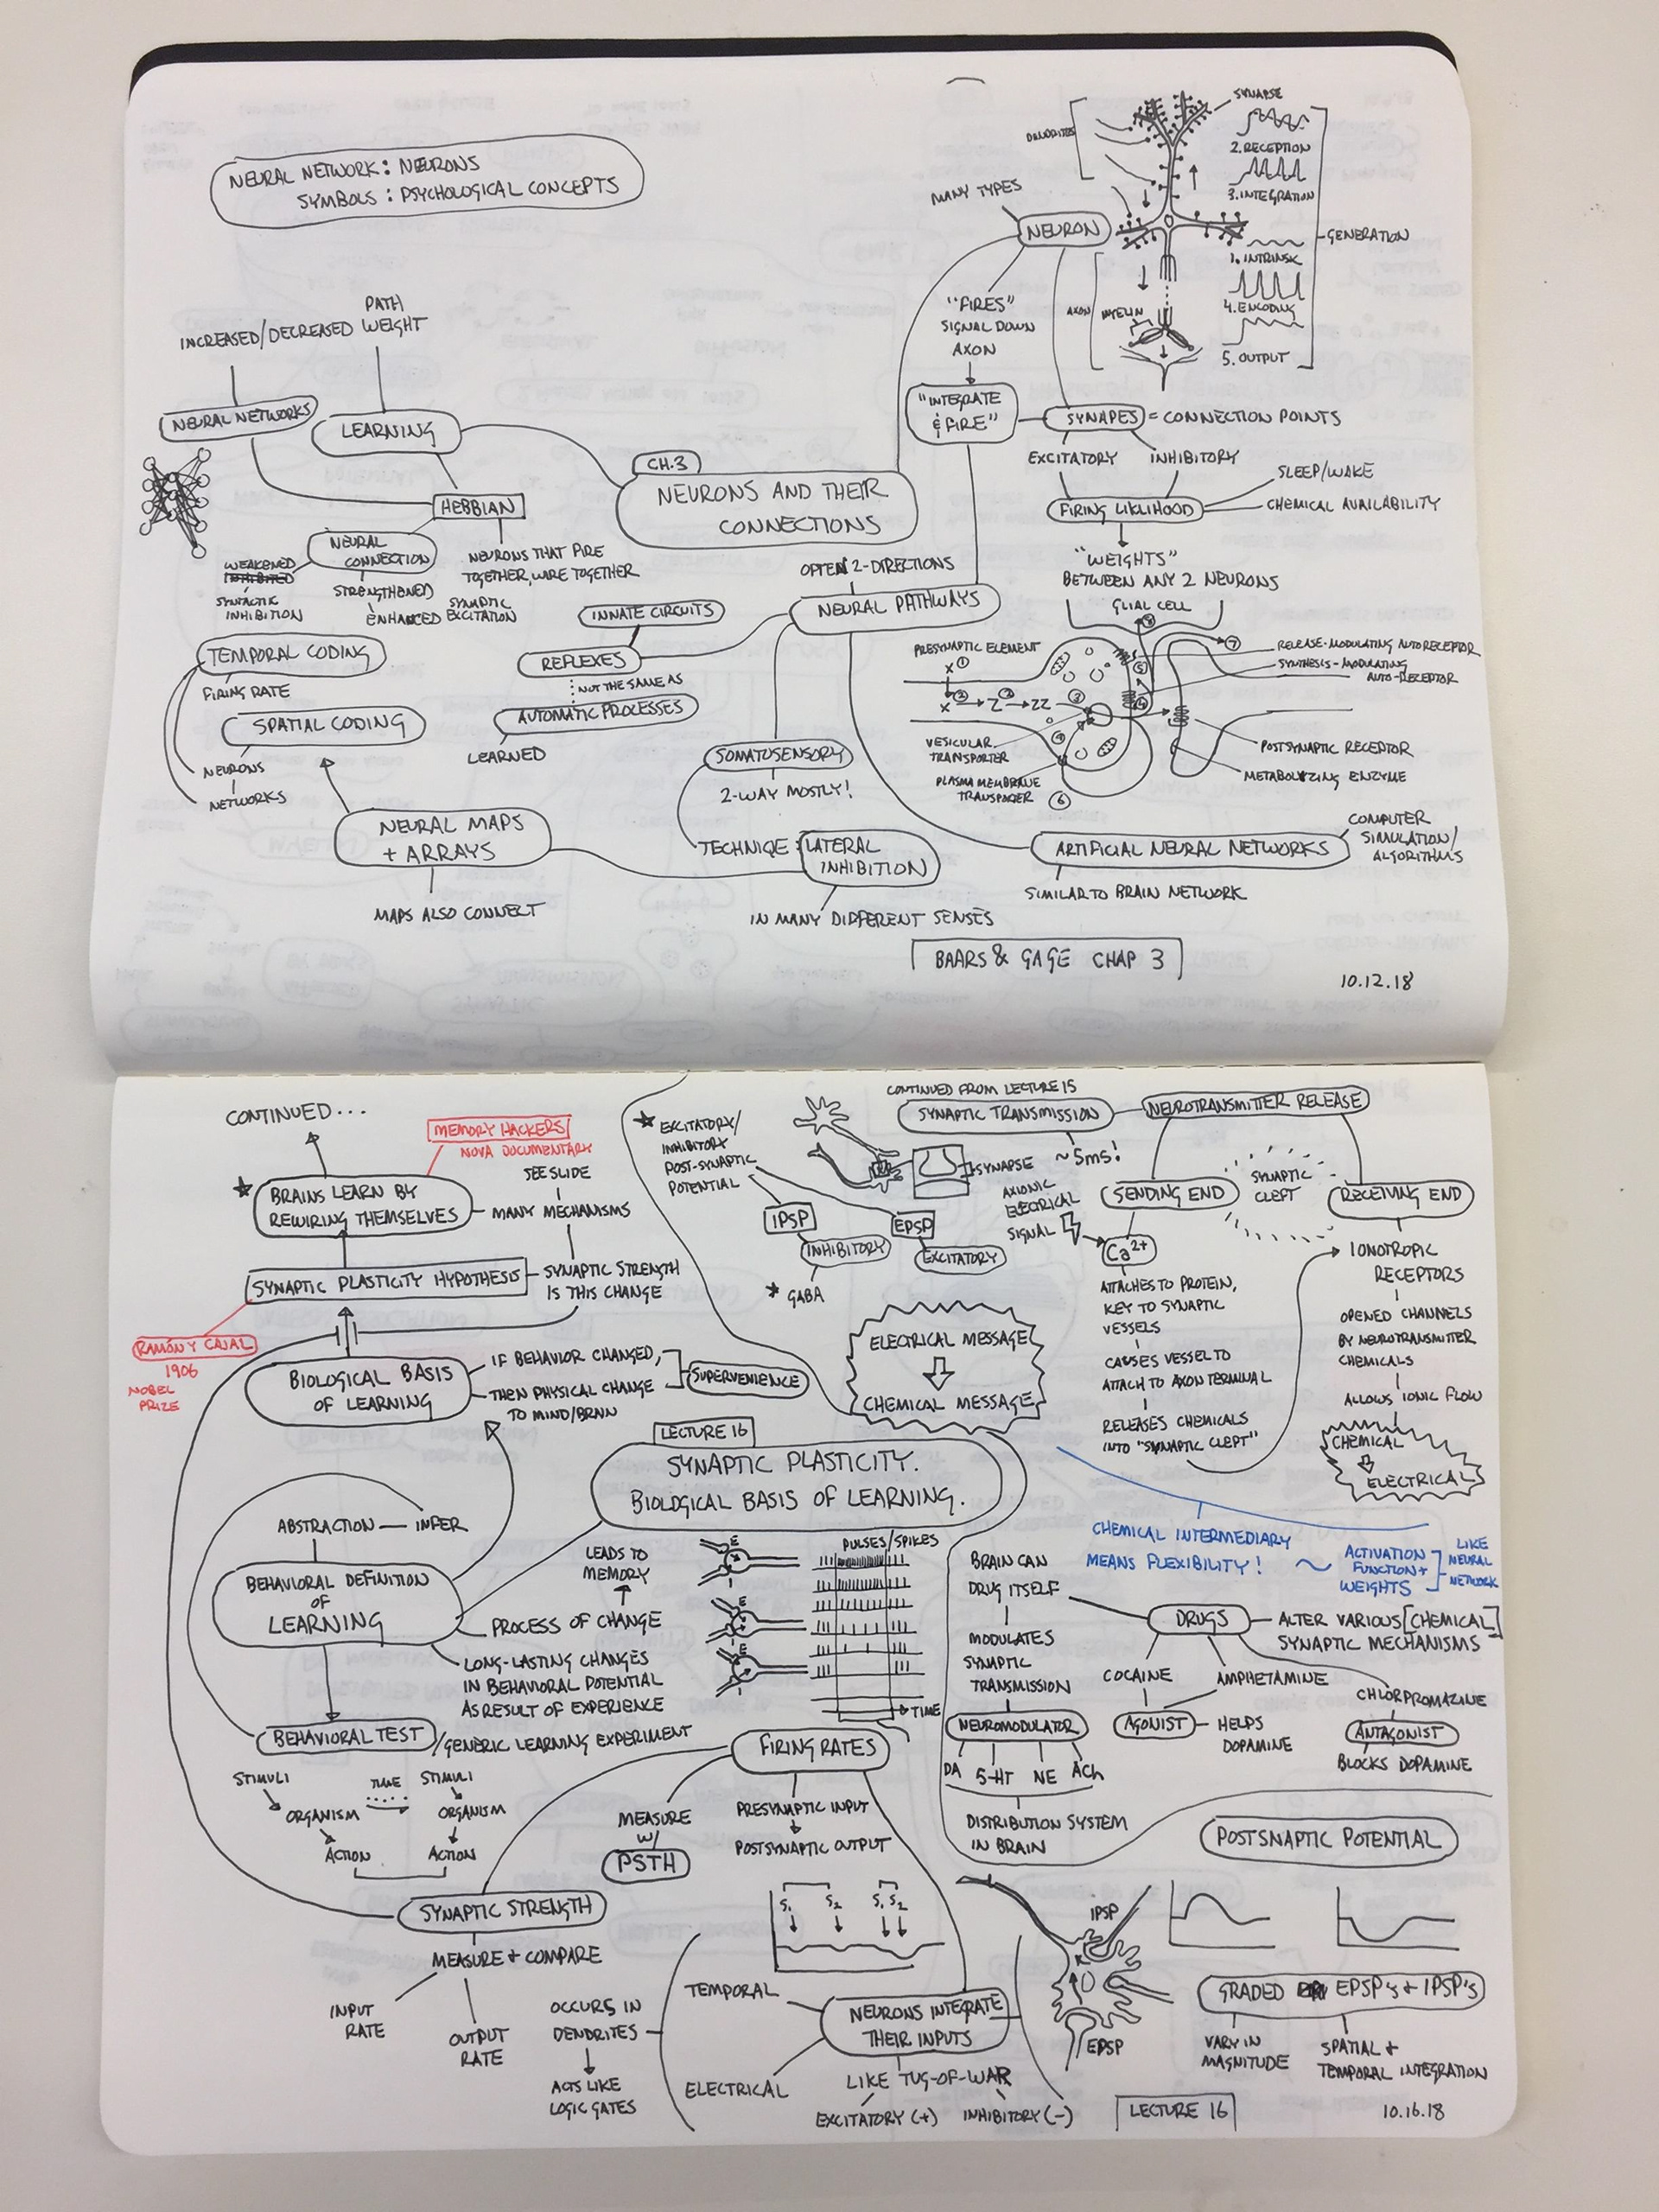 NEURAL NETWORK: NEURONS
SYMBOLS: PSYCHOLOGICAL CONCEPTS
DENDRITES
SYNAPSE
2. RECEPTION
3. INTEGRATION
GENERATION
1. INTRINSK
4. ENCODING
5. OUTPUT
AXON
MYELIN
MANY TYPES
NEURON
"FIRES"
SIGNAL DOWN
AXON
"INTEGRATE
& FIRE"
SYNAPES = CONNECTION POINTS
EXCITATORY
INHIBITORY
FIRING LIKLIHOOD
SLEEP/WAKE
CHEMICAL AVAILABILITY
"WEIGHTS"
BETWEEN ANY 2 NEURONS
PATH
INCREASED/DECREASED WEIGHT
NEURAL NETWORKS
LEARNING
HEBBIAN
CH.3
NEURONS AND THEIR
CONNECTIONS
NEURAL
CONNECTION
WEAKENED
INHIBITED
SYNTACTIC
INHIBITION
STRENGTHENED
SYNAPTIC
ENHANCED EXCITATION
NEURONS THAT FIRE
TOGETHER, WIRE TOGETHER
OFTEN 2-DIRECTIONS
NEURAL PATHWAYS
INNATE CIRCUITS
REFLEXES
NOT THE SAME AS
AUTOMATIC PROCESSES
LEARNED
TEMPORAL CODING
FIRING RATE
SPATIAL CODING
NEURONS
NETWORKS
NEURAL MAPS
+ ARRAYS
MAPS ALSO CONNECT
SOMATOSENSORY
2-WAY MOSTLY!
TECHNIQE: LATERAL
INHIBITION
IN MANY DIFFERENT SENSES
GLIAL CELL
PRESYNAPTIC ELEMENT
RELEASE-MODULATING AUTORECEPTOR
SYNTHESIS-MODULATING
AUTO-RECEPTOR
VESICULAR
TRANSPORTER
PLASMA MEMBRANE
TRANSPORTER
POSTSYNAPTIC RECEPTOR
METABOLYZING ENZYME
ARTIFICIAL NEURAL NETWORKS
COMPUTER
SIMULATION/
ALGORITHMS
SIMILAR TO BRAIN NETWORK
BAARS & GAGE CHAP 3
10.12.18
CONTINUED...
MEMORY HACKERS
NOVA DOCUMENTARY
SEE SLIDE
BRAINS LEARN BY
REWIRING THEMSELVES
MANY MECHANISMS
SYNAPTIC PLASTICITY HYPOTHESIS
SYNAPTIC STRENGTH
IS THIS CHANGE
RAMÓN Y CAJAL
1906
NOBEL
PRIZE
BIOLOGICAL BASIS
OF LEARNING
IF BEHAVIOR CHANGED,
THEN PHYSICAL CHANGE
TO MIND/BRAIN
SUPERVENIENCE
EXCITATORY/
INHIBITORY
POST-SYNAPTIC
POTENTIAL
IPSP
INHIBITORY
GABA
EPSP
EXCITATORY
CONTINUED FROM LECTURE 15
SYNAPTIC TRANSMISSION
~5ms!
SYNAPSE
NEUROTRANSMITTER RELEASE
SENDING END
SYNAPTIC
CLEFT
RECEIVING END
AXIONIC
ELECTRICAL
SIGNAL
Ca2+
ATTACHES TO PROTEIN,
KEY TO SYNAPTIC
VESSELS
CAUSES VESSEL TO
ATTACH TO AXON TERMINAL
RELEASES CHEMICALS
INTO "SYNAPTIC CLEFT"
IONOTROPIC
RECEPTORS
OPENED CHANNELS
BY NEUROTRANSMITTER
CHEMICALS
ALLOWS IONIC FLOW
CHEMICAL
ELECTRICAL
ELECTRICAL MESSAGE
CHEMICAL MESSAGE
LECTURE 16
SYNAPTIC PLASTICITY.
BIOLOGICAL BASIS OF LEARNING.
CHEMICAL INTERMEDIARY
MEANS FLEXIBILITY!
~
ACTIVATION
FUNCTION +
WEIGHTS
LIKE
NEURAL
NETWORK
ABSTRACTION — INFER
BEHAVIORAL DEFINITION
OF
LEARNING
LEADS TO
MEMORY
PROCESS OF CHANGE
LONG-LASTING CHANGES
IN BEHAVIORAL POTENTIAL
AS RESULT OF EXPERIENCE
BEHAVIORAL TEST / GENERIC LEARNING EXPERIMENT
STIMULI
ORGANISM
ACTION
TIME
STIMULI
ORGANISM
ACTION
PULSES/SPIKES
E
I
E
I
E
I
TIME
FIRING RATES
MEASURE
W/
PSTH
PRESYNAPTIC INPUT
POSTSYNAPTIC OUTPUT
BRAIN CAN
DRUG ITSELF
MODULATES
SYNAPTIC
TRANSMISSION
NEUROMODULATOR
DA
5-HT
NE
ACh
DISTRIBUTION SYSTEM
IN BRAIN
DRUGS
ALTER VARIOUS [CHEMICAL]
SYNAPTIC MECHANISMS
COCAINE
AMPHETAMINE
CHLORPROMAZINE
AGONIST
HELPS
DOPAMINE
ANTAGONIST
BLOCKS DOPAMINE
POSTSNAPTIC POTENTIAL
SYNAPTIC STRENGTH
MEASURE + COMPARE
INPUT
RATE
OUTPUT
RATE
OCCURS IN
DENDRITES
ACTS LIKE
LOGIC GATES
S1
S2
S1 S2
TEMPORAL
NEURONS INTEGRATE
THEIR INPUTS
ELECTRICAL
LIKE TUG-OF-WAR
EXCITATORY (+)
INHIBITORY (-)
IPSP
EPSP
GRADED EPSP's + IPSP's
VARY IN
MAGNITUDE
SPATIAL +
TEMPORAL INTEGRATION
LECTURE 16
10.16.18